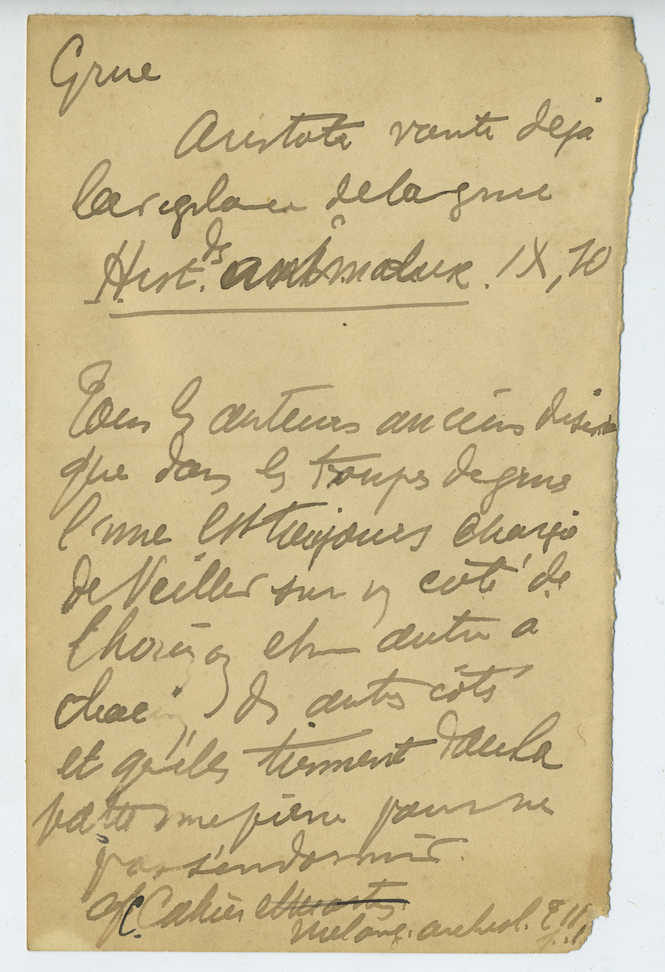 Grue
Aristote vante deja
la vigilance de la grue
Hist. ds animaux. IX, 10
Tous les auteurs anciens disent
que dans les troupes de grues
l'une est toujours chargé
de veiller sur un côté de
l'horizon et une autre à
chacun des autres côtés
et qu'elles tiennent dans la
patte une pierre pour ne
pas s'endormir.
cf. Cahier
Melang. archeol. T II